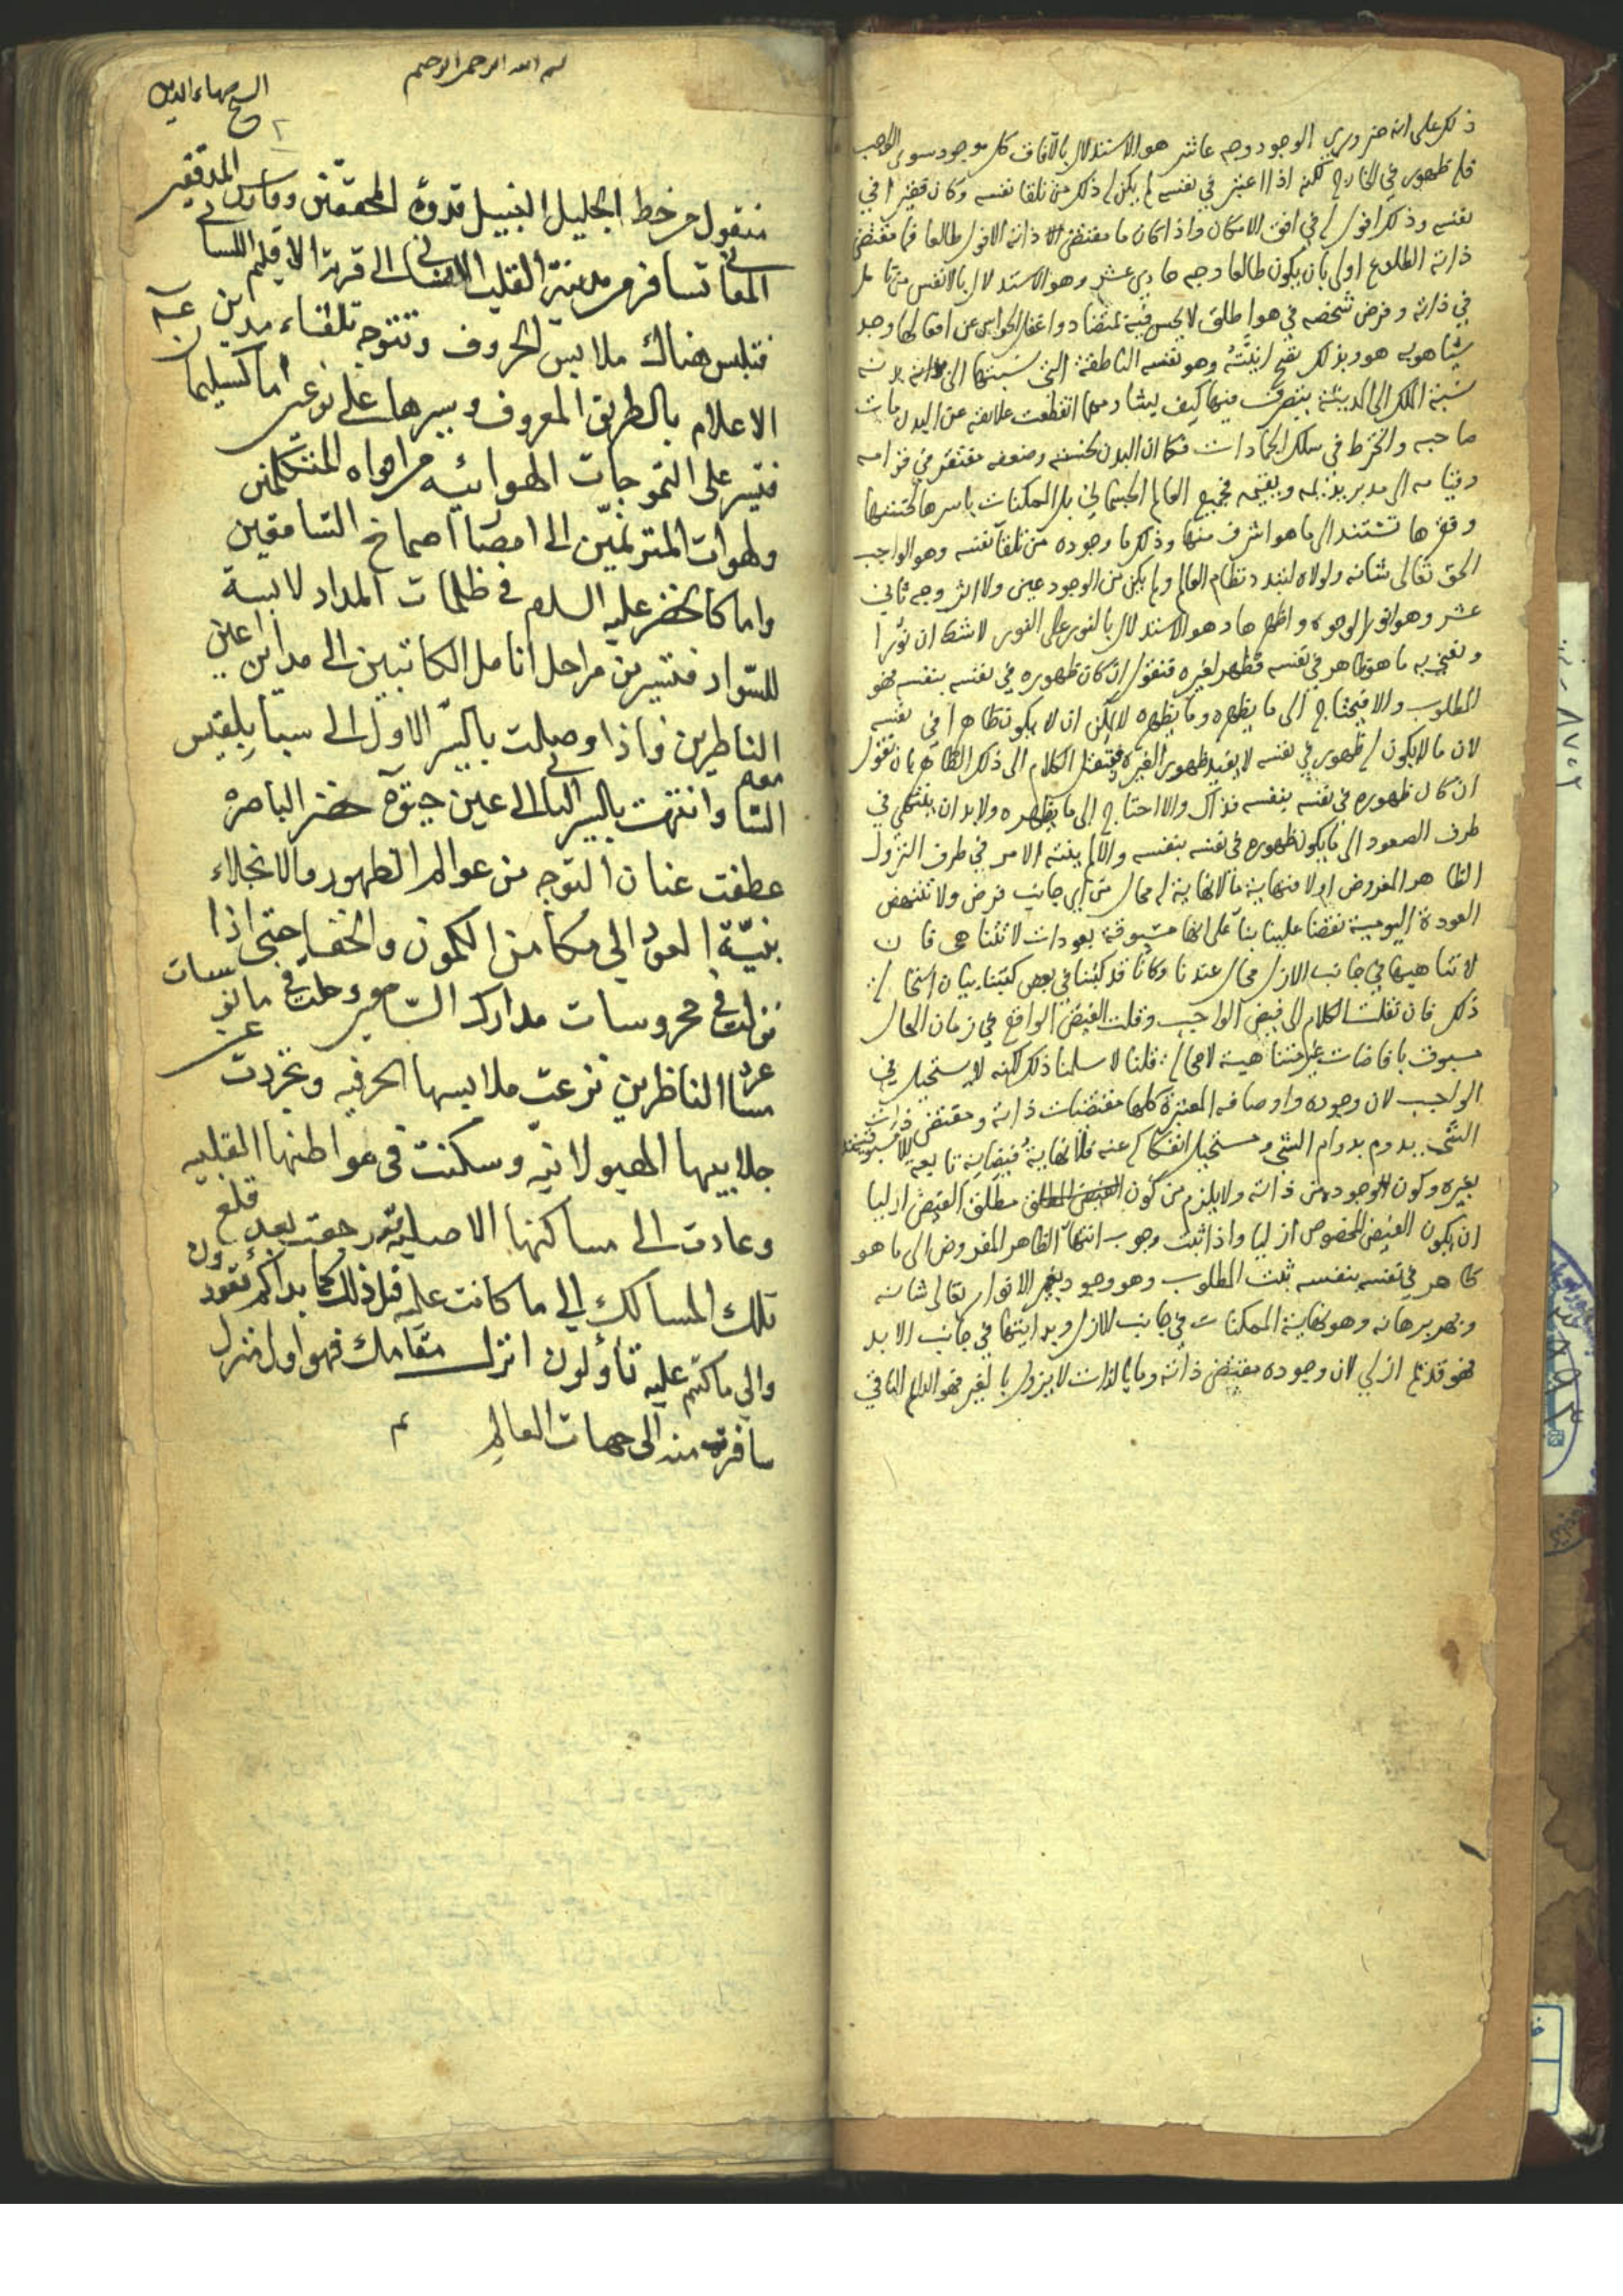 ذلك على انه ضروري الوجود وجه عاشر هو الاستدلال بالآفاق كل موجود سوى الواجب
فله ظهور في الخارج لكنه اذا اعتبر في نفسه لم يكن له ذلك من تلقاء نفسه وكان فقيرا في
نفسه وذلك افول له في افق الامكان واذا كان ما مقتضى ذاته الافول طالعا فما مقتضى
ذاته الطلوع اولى بان يكون طالعا وجه حادي عشر وهو الاستدلال بالانفس من تامل
في ذاته وفرض شخصه في هواء طلق لا يحس فيه بمتضاد واغفل الحواس عن افعالها وجد
شيئا هو به هو وبذلك تصح انيته وهو نفسه الناطقة التي نسبتها الى بدنه
نسبة الملك الى المدينة يتصرف فيها كيف يشاء ومهما انقطعت علاقته عن البدن مات
صاحبه وانخرط في سلك الجمادات فكما ان البدن لخسته وضعفه مفتقر في قوامه
وقيامه الى مدبر يديمه ويقيمه فجميع العالم الجسماني بل الممكنات باسرها لخستها
وفقرها تستند الى ما هو اشرف منها وذلك ما وجوده من تلقاء نفسه وهو الواجب
الحق تعالى شانه ولولاه لتبدد نظام العالم ولم يكن من الوجود عين ولا اثر وجه ثاني
عشر وهو انور الوجوه واظهرها وهو الاستدلال بالنور على النور لا شك ان نورا
ونعني به ما هو ظاهر في نفسه مظهر لغيره فنقول ان كان ظهوره في نفسه بنفسه فهو
المطلوب والا فيحتاج الى ما يظهره وما يظهره لا يمكن ان لا يكون ظاهرا في نفسه
لان ما لا يكون له ظهور في نفسه لا يفيد ظهور الغيره فننقل الكلام الى ذلك الظاهر بان نقول
ان كان ظهوره في نفسه بنفسه فذاك والا احتاج الى ما يظهره ولا بد ان ينتهي في
طرف الصعود الى ما يكون ظهوره في نفسه بنفسه والا لم ينته الامر في طرف النزول
الظاهر المفروض اولا منها ية ما لا نهاية له محال من اي جانب فرض ولا تنتهض
العودة اليومية نقضا علينا بناء على انها مسبوقة بعودات لا تتناهى فان
لا تناهيها في جانب الازل محال عندنا وكانا قد كتبنا في بعض كتبنا بيان استحالة
ذلك فان نقلت الكلام الى فيض الواجب وقلت الفيض الواقع في زمان الحال
مسبوق بافاضات غير متناهية لا محالة قلنا لا سلمنا ذلك لكنه لا يستحيل في
الواجب لان وجوده واوصافه المعتبرة كلها مقتضيات ذاته ومقتضى ذات
الشيء يدوم بدوام الشيء ومستحيل انفكاكه عنه فلا نهاية فيضانه تابعة
بغيره وكون الوجود من ذاته ولا يلزم من كون مطلق الفيض ازليا
ان يكون الفيض المخصوص ازليا واذا ثبت وجوب انتهاء الظاهر المفروض الى ما هو
ظاهر في نفسه بنفسه ثبت المطلوب وهو وجود نور الانوار تعالى شانه
وبهر برهانه وهو نهاية الممكنات في جانب الازل وبدايتها في جانب الابد
فهو قديم ازلي لان وجوده مقتضى ذاته وما بالذات لا يزول بالغير فهو الدائم الباقي
بسم الله الرحمن الرحيم
الشيخ بهاء الدين
منقول من خط الجليل النبيل قدوة المحققين وفارس المدققين
المعاني تسافر من مدينة القلب الانساني الى قرية الاقليم اللساني
فتلبس هناك ملابس الحروف وتتوجه تلقاء مدين عينه
الاعلام بالطريق المعروف وسيرها على نوعين اما كسليمان
فتسير على التموجات الهوائيه من افواه المتكلمين
ولهوات المترنمين الى امضاء اصماخ السامعين
واما كالخضر عليه السلم في ظلمات المداد لابسة
للسواد فتسير من مراحل انامل الكاتبين الى مدائن اعين
الناظرين فاذا وصلت بالسير الاول الى سبا بلقيس
السامعه وانتهت بالسير الثاني الى عين حيوة خضر الباصره
عطفت عنان التوجه من عوالم الظهور والانجلاء
بنية العود الى مكامن الكمون والخفاء حتى اذا
نزلت في محروسات مدارك السامعين وحلت في مانوسات
مشاعر الناظرين نزعت ملابسها الحرفيه وتجردت عن
جلابيبها الهيولانيه وسكنت في مواطنها القلبيه
وعادت الى مساكنها الاصليه ورجعت بعد قطع
تلك المسالك الى ما كانت عليه قبل ذلك كما بداكم تعودون
والى ما كنتم عليه تأولون انزل مقامك فهو اول منزل
سافرت منه الى جهات العالم
تم